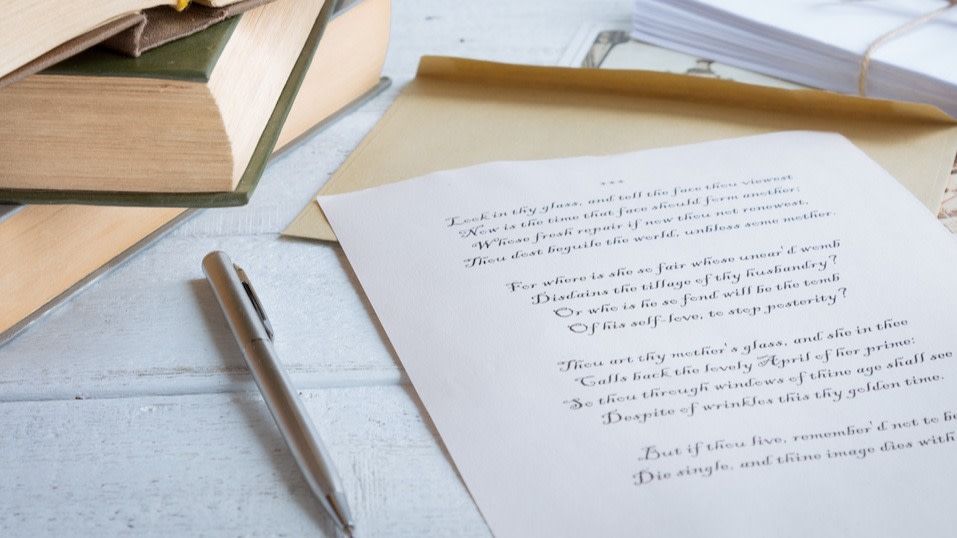 * * *
Look in thy glass, and tell the face thou viewest
Now is the time that face should form another;
Whose fresh repair if now thou not renewest,
Thou dost beguile the world, unbless some mother.
For where is she so fair whose unear'd womb
Disdains the tillage of thy husbandry?
Or who is he so fond will be the tomb
Of his self-love, to stop posterity?
Thou art thy mother's glass, and she in thee
Calls back the lovely April of her prime:
So thou through windows of thine age shall see
Despite of wrinkles this thy golden time.
But if thou live, remember'd not to
Die single, and thine image dies with